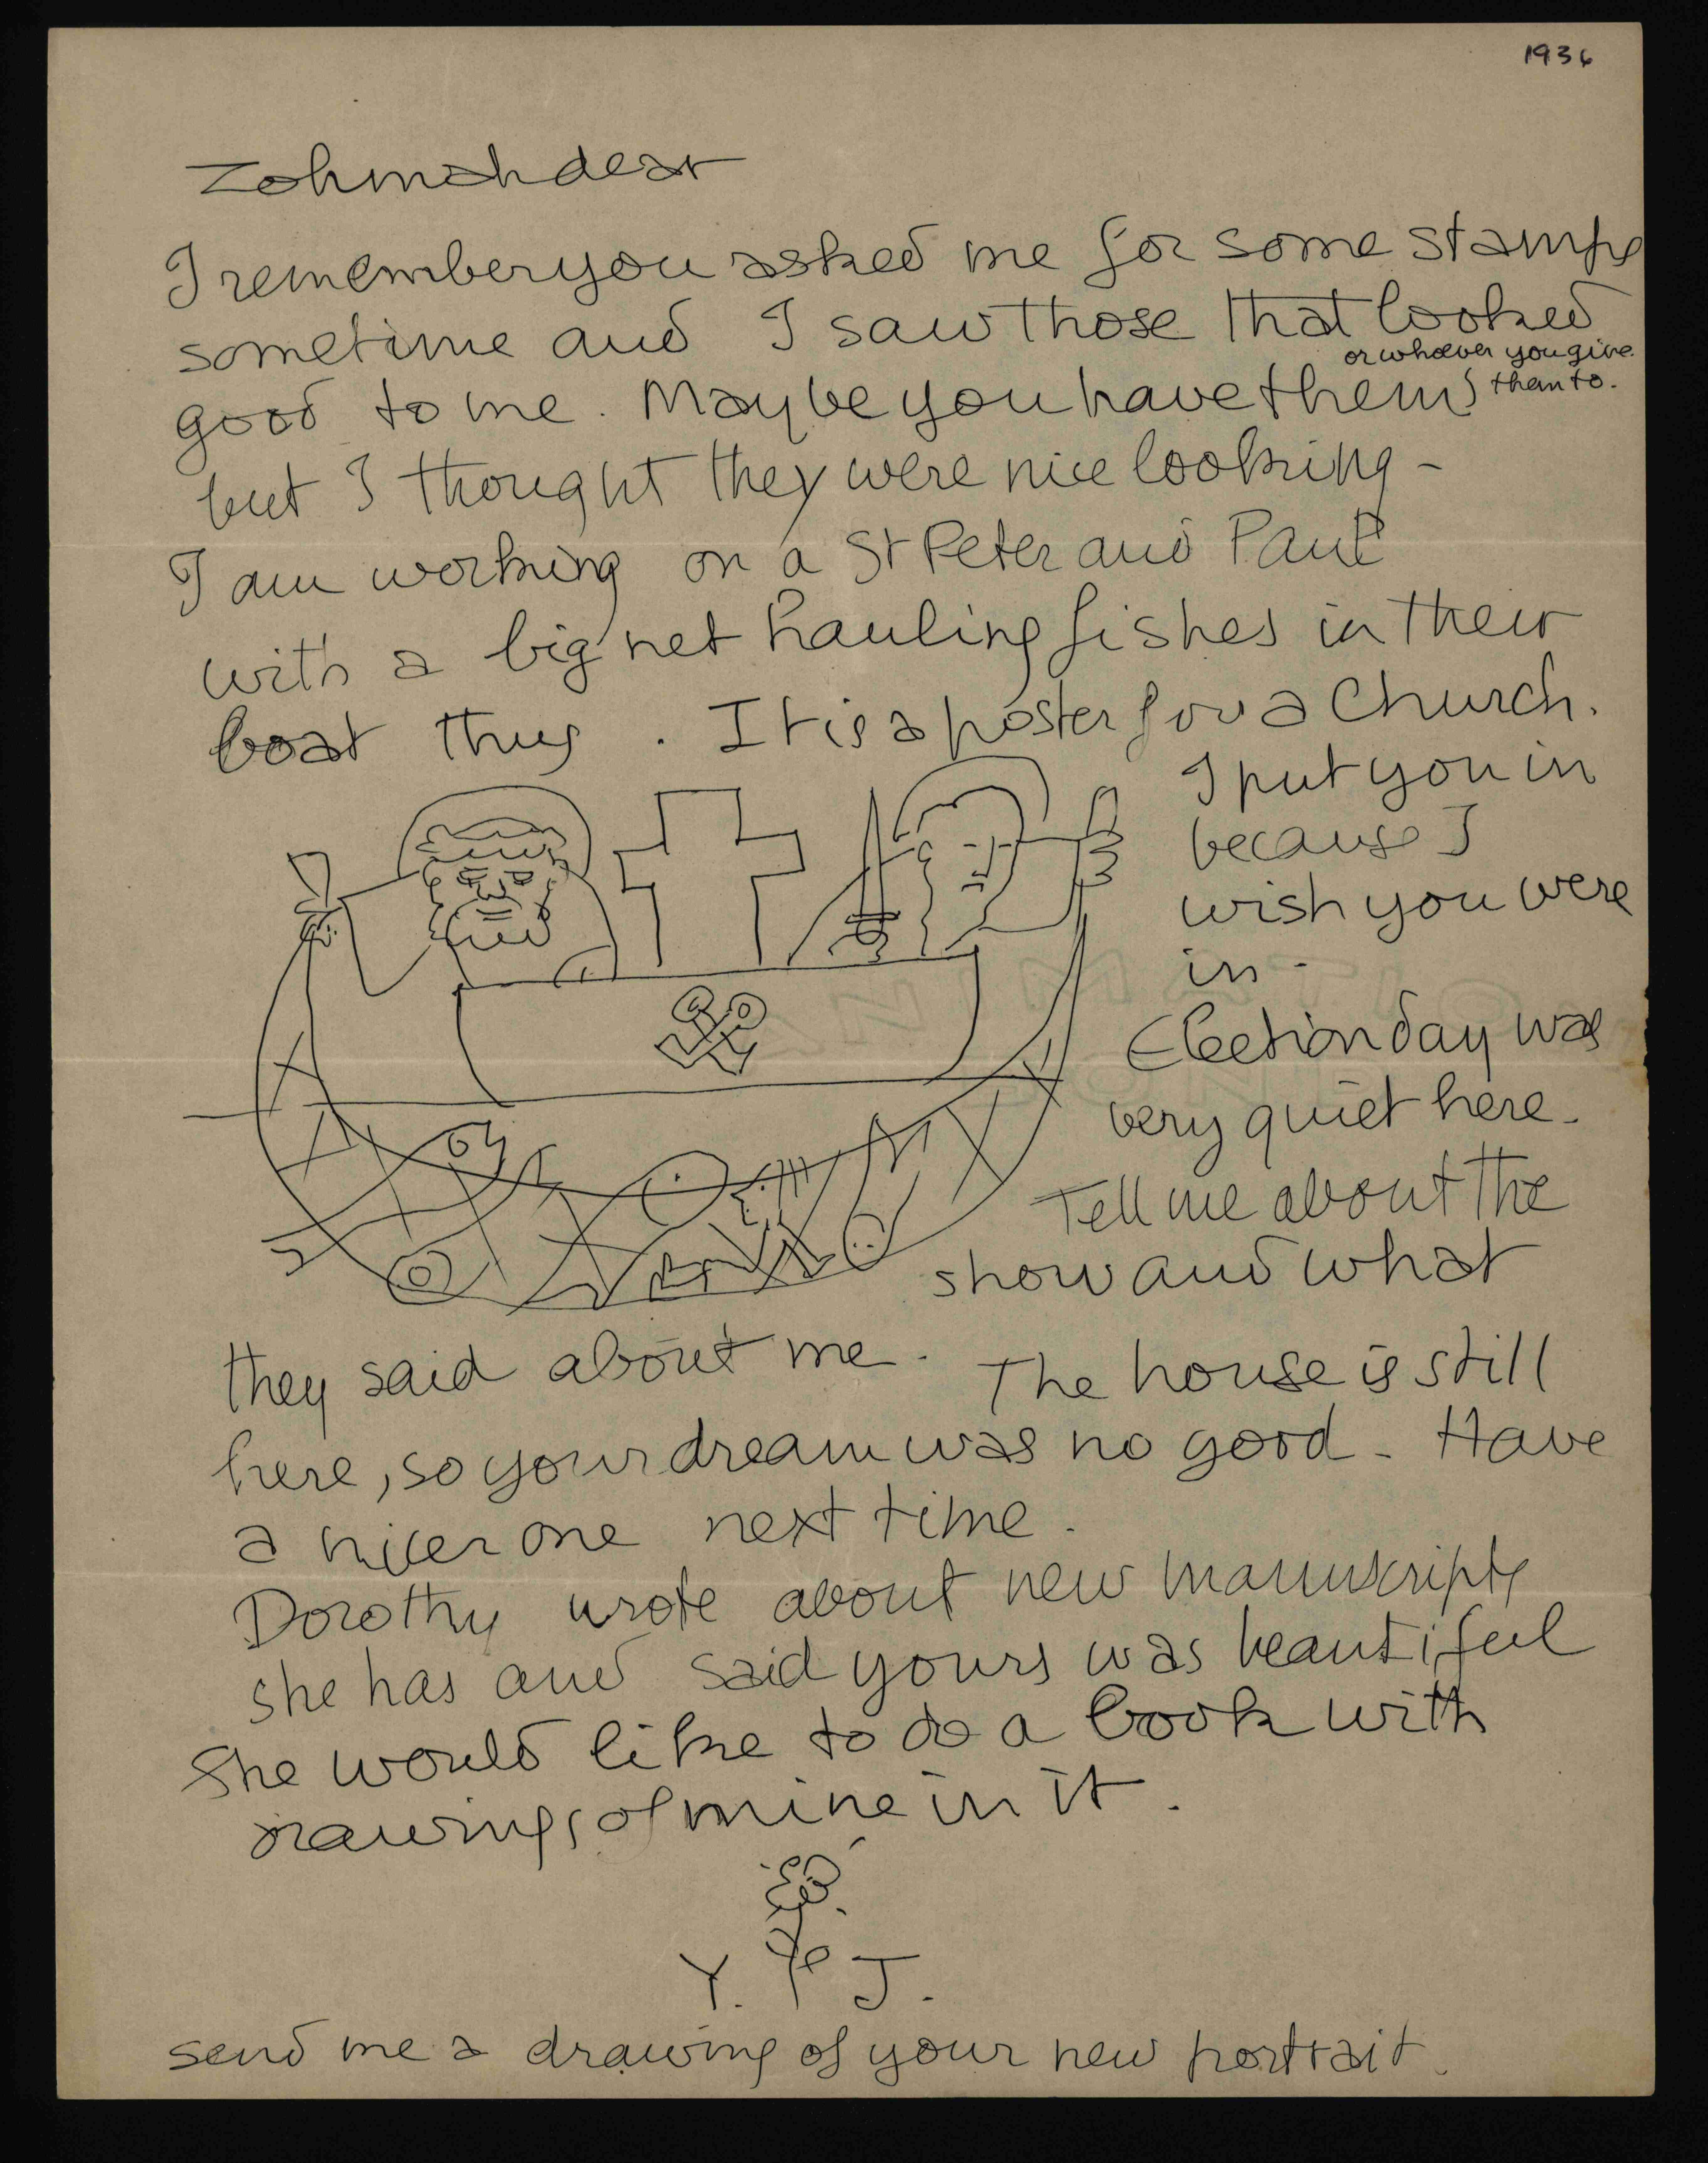 1936
Zohmah dear
I remember you asked me for some stamps
sometime and I saw those that looked
or whoever you give
them to.
good to me. Maybe you have them
but I thought they were nice looking -
I am working on a St Peter and Paul
with a big net hauling fishes in their
boat thus. It is a poster for a Church.
I put you in
because I
wish you were
in -
Election day was
very quiet here.
Tell me about the
show and what
they said about me. The house is still
here, so your dream was no good - Have
a nicer one next time.
Dorothy wrote about new manuscripts
she has and said yours was beautiful
She would like to do a book with
drawings of mine in it.
Y. J.
send me a drawing of your new portrait.